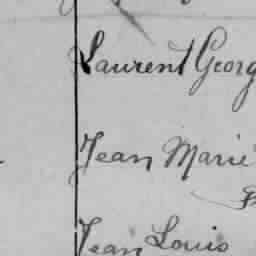 Laurent Georg
Jean Marie
Jean Louis